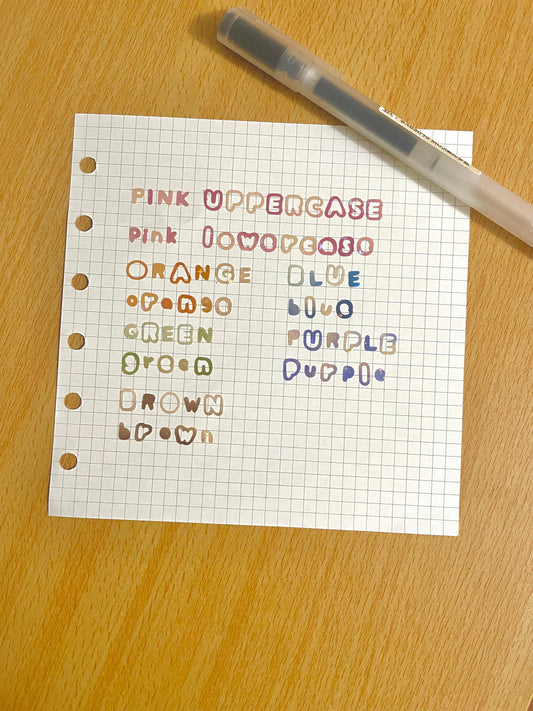 PINK UPPERCASE
pink lowercase
ORANGE
orange
GREEN
green
BROWN
brown
BLUE
blue
PURPLE
purple